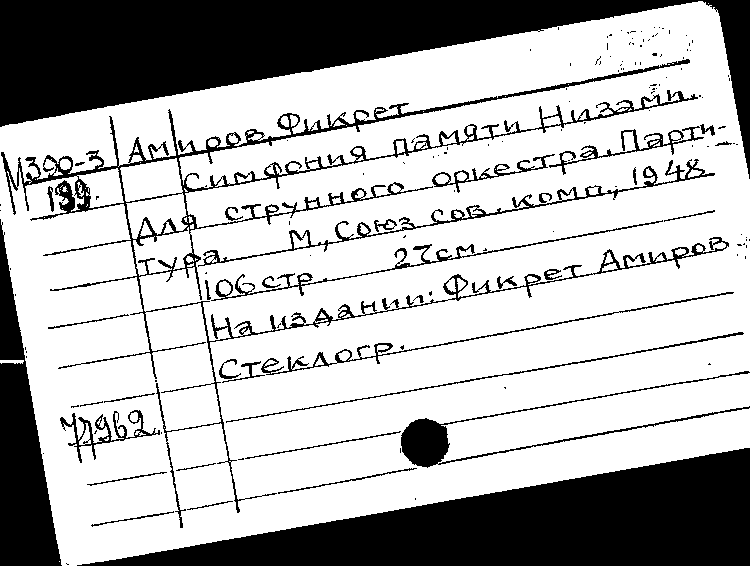 М390-3 Амиров, Фикрет
199. Симфония памяти Низами.
Для струнного оркестра. Парти-
тура. М., Союз сов. комп., 1948
106 стр. 27 см.
На издании: Фикрет Амиров
Стеклогр.